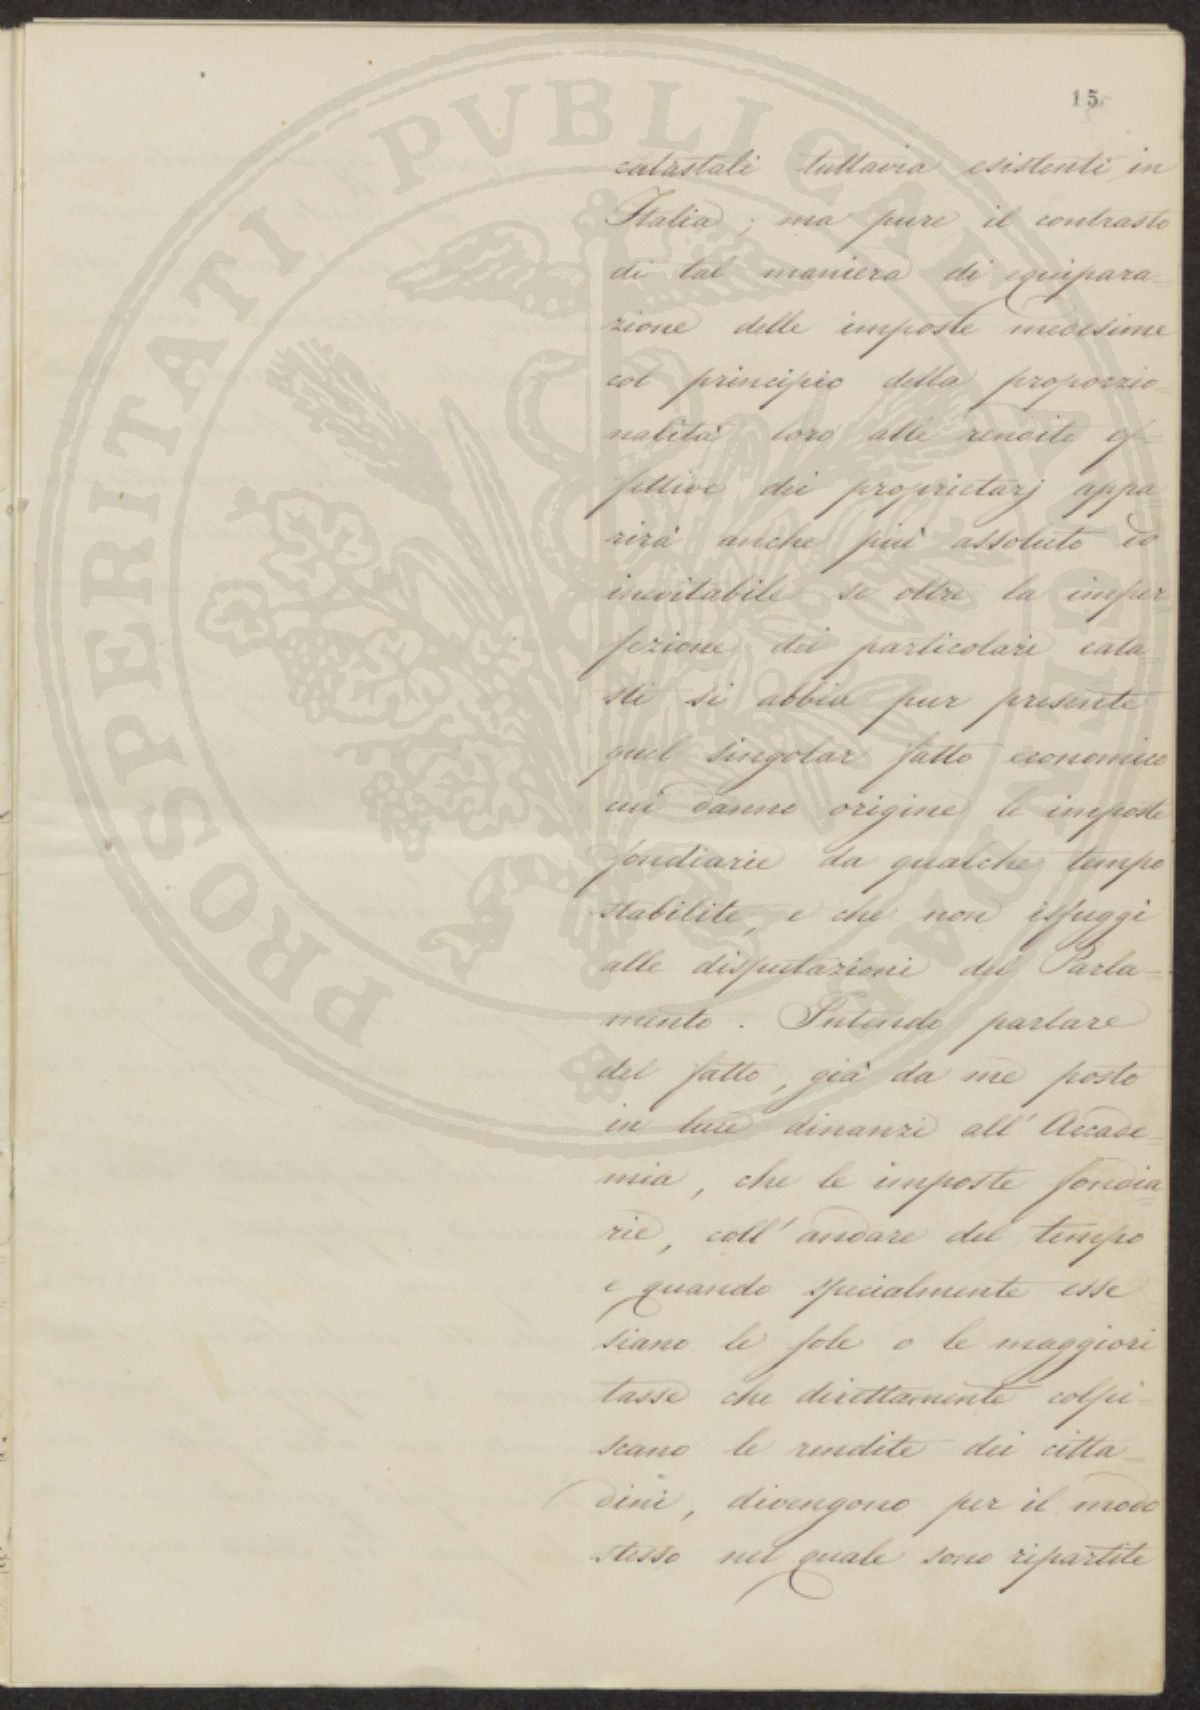 15
catastali tuttavia esistenti in
Italia; ma pure il contrasto
di tal maniera di equipara-
zione delle imposte medesime
col principio della proporzio-
nalità loro alle rendite ef-
fettive dei proprietarj appa-
rirà anche più assoluto ed
inevitabile se oltre la imper
fezione dei particolari cata
sti si abbia pur presente
quel singolar fatto economico
cui danno origine le imposte
fondiarie da qualche tempo
stabilite, e che non isfuggì
alle disputazioni del Parla-
mento. Intendo parlare
del fatto, già da me posto
in luce dinanzi all'Accade-
mia, che le imposte fondia-
rie, coll'andare del tempo
e quando specialmente esse
siano le sole o le maggiori
tasse che direttamente colpi-
scano le rendite dei citta-
dini, divengono per il modo
stesso nel quale sono ripartite
PROSPERITATI PVBLICAE AVGENDAE